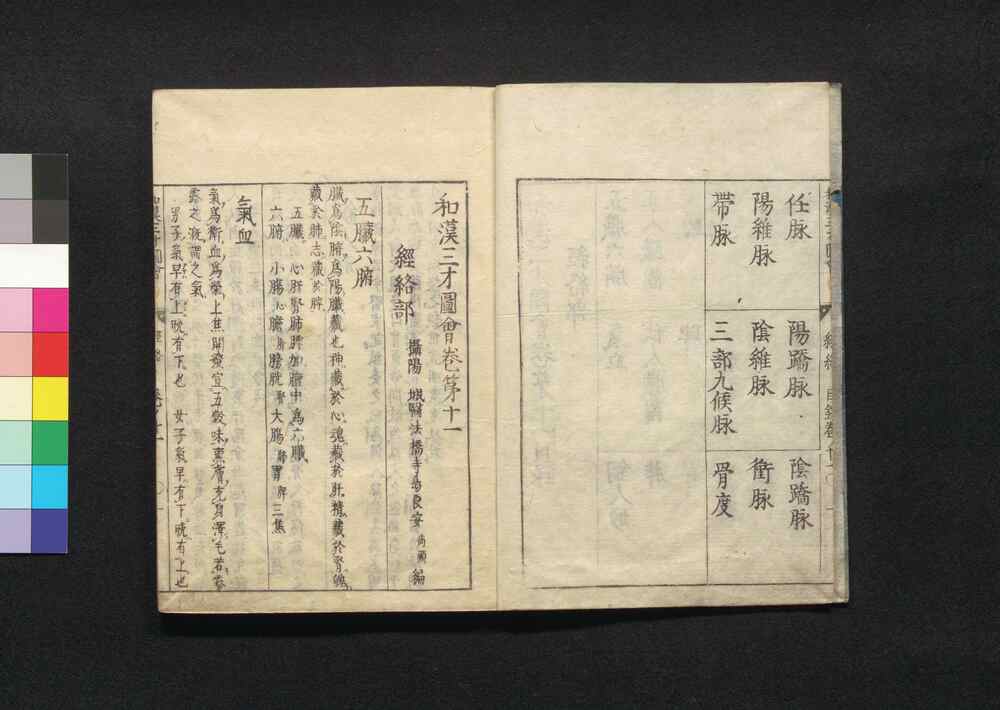 任脉
陽蹻脉
陰蹻脉
陽維脉
陰維脉
衝脉
帶脉
三部九候脉
骨度
和漢三才圖會卷第十一
經絡部
攝陽 城醫法橋寺島良安尚順編
五臟六腑
臟爲陰腑爲陽臟藏也神藏於心魂藏於肝精藏於腎魄
藏於肺志藏於脾
五臟 心肝腎肺脾加膻中爲六臟
六腑 小腸心膽肝膀胱腎大腸肺胃脾三焦
氣血
氣爲衛血爲榮上焦開發宣五穀味熏膚充身澤毛若霧
露之漑謂之氣
男子氣早有上晩有下也 女子氣早有下晩有上也